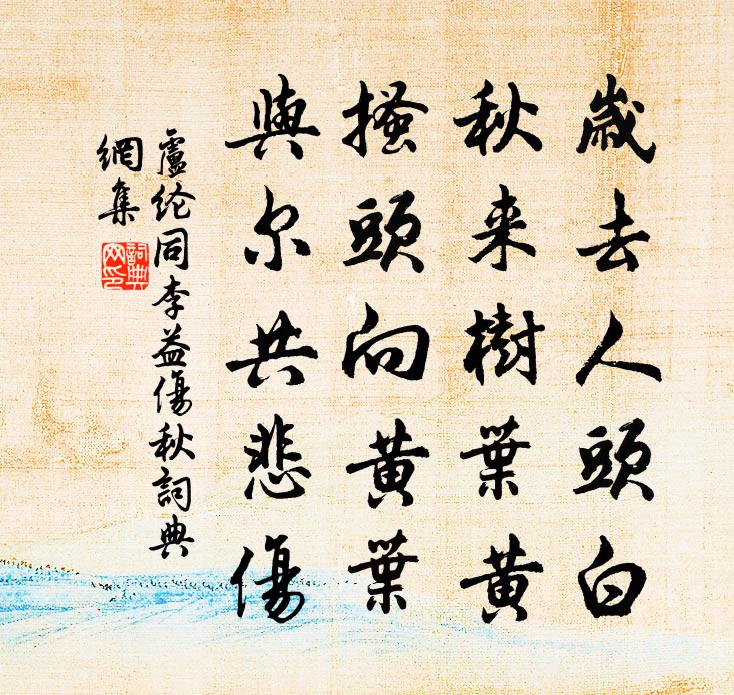 歲去人頭白
秋来樹葉黄
搔頭向黄葉
與尔共悲傷
盧纶同李益傷秋詞典
網集
詞典
网印